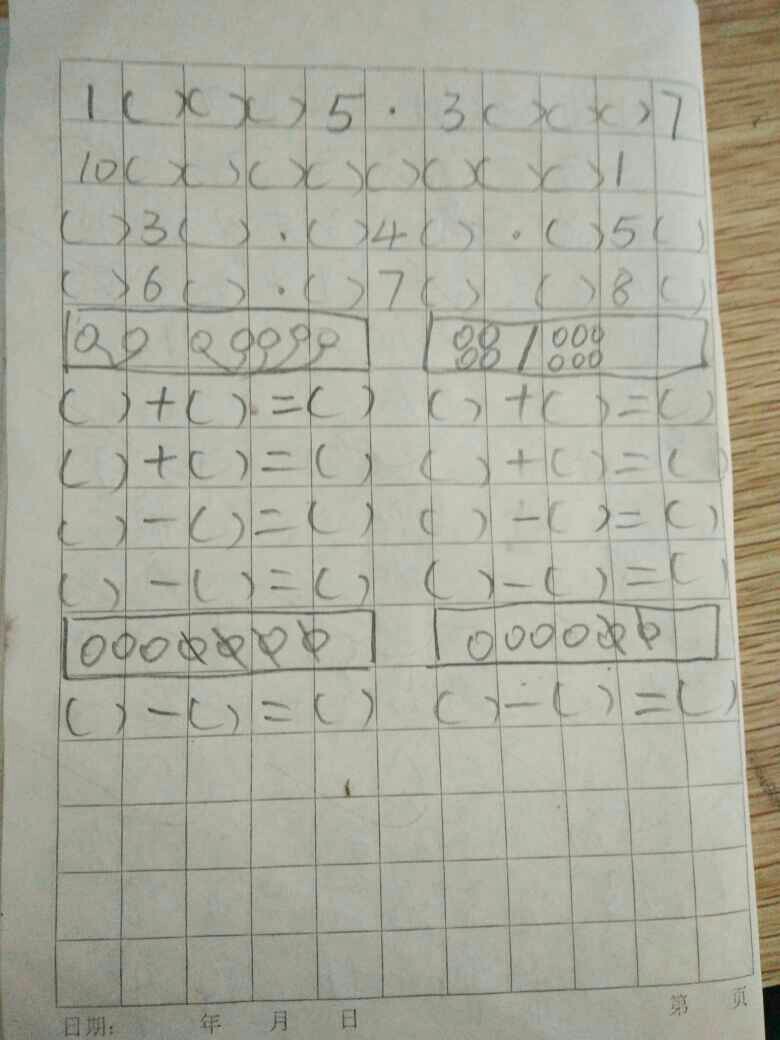 1 ( ) ( ) ( ) 5 · 3 ( ) ( ) ( ) 7
10 ( ) ( ) ( ) ( ) ( ) ( ) ( ) ( ) 1
( ) 3 ( ) · ( ) 4 ( ) · ( ) 5 ( )
( ) 6 ( ) · ( ) 7 ( ) ( ) 8 ( )
( ) + ( ) = ( ) ( ) + ( ) = ( )
( ) + ( ) = ( ) ( ) + ( ) = ( )
( ) - ( ) = ( ) ( ) - ( ) = ( )
( ) - ( ) = ( ) ( ) - ( ) = ( )
( ) - ( ) = ( ) ( ) - ( ) = ( )
日期: 年 月 日 第 页